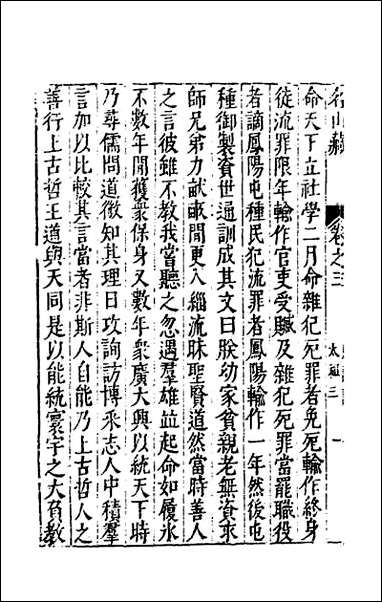 名山藏 卷之三 太祖三 一
命天下立社學二月命雜犯死罪者免死輸作終身
徒流罪限年輸作官吏受贓及雜犯死罪當罷職役
者謫鳳陽屯種民犯流罪者鳳陽輸作一年然後屯
種御製資世通訓成其文曰朕幼家貧親老無資求
師兄弟力畝畝間更入緇流昧聖賢道然當時善人
之言彼雖不教我嘗聽之忽遇羣雄並起命如履氷
不數年間獲衆保身又數年衆廣大興以統天下時
乃尋儒問道徵知其理日攻詢訪博采志人中積羣
言加以比較其言當者非斯人自能乃上古哲人之
善行上古哲王道與天同是以能統寰宇之大負教